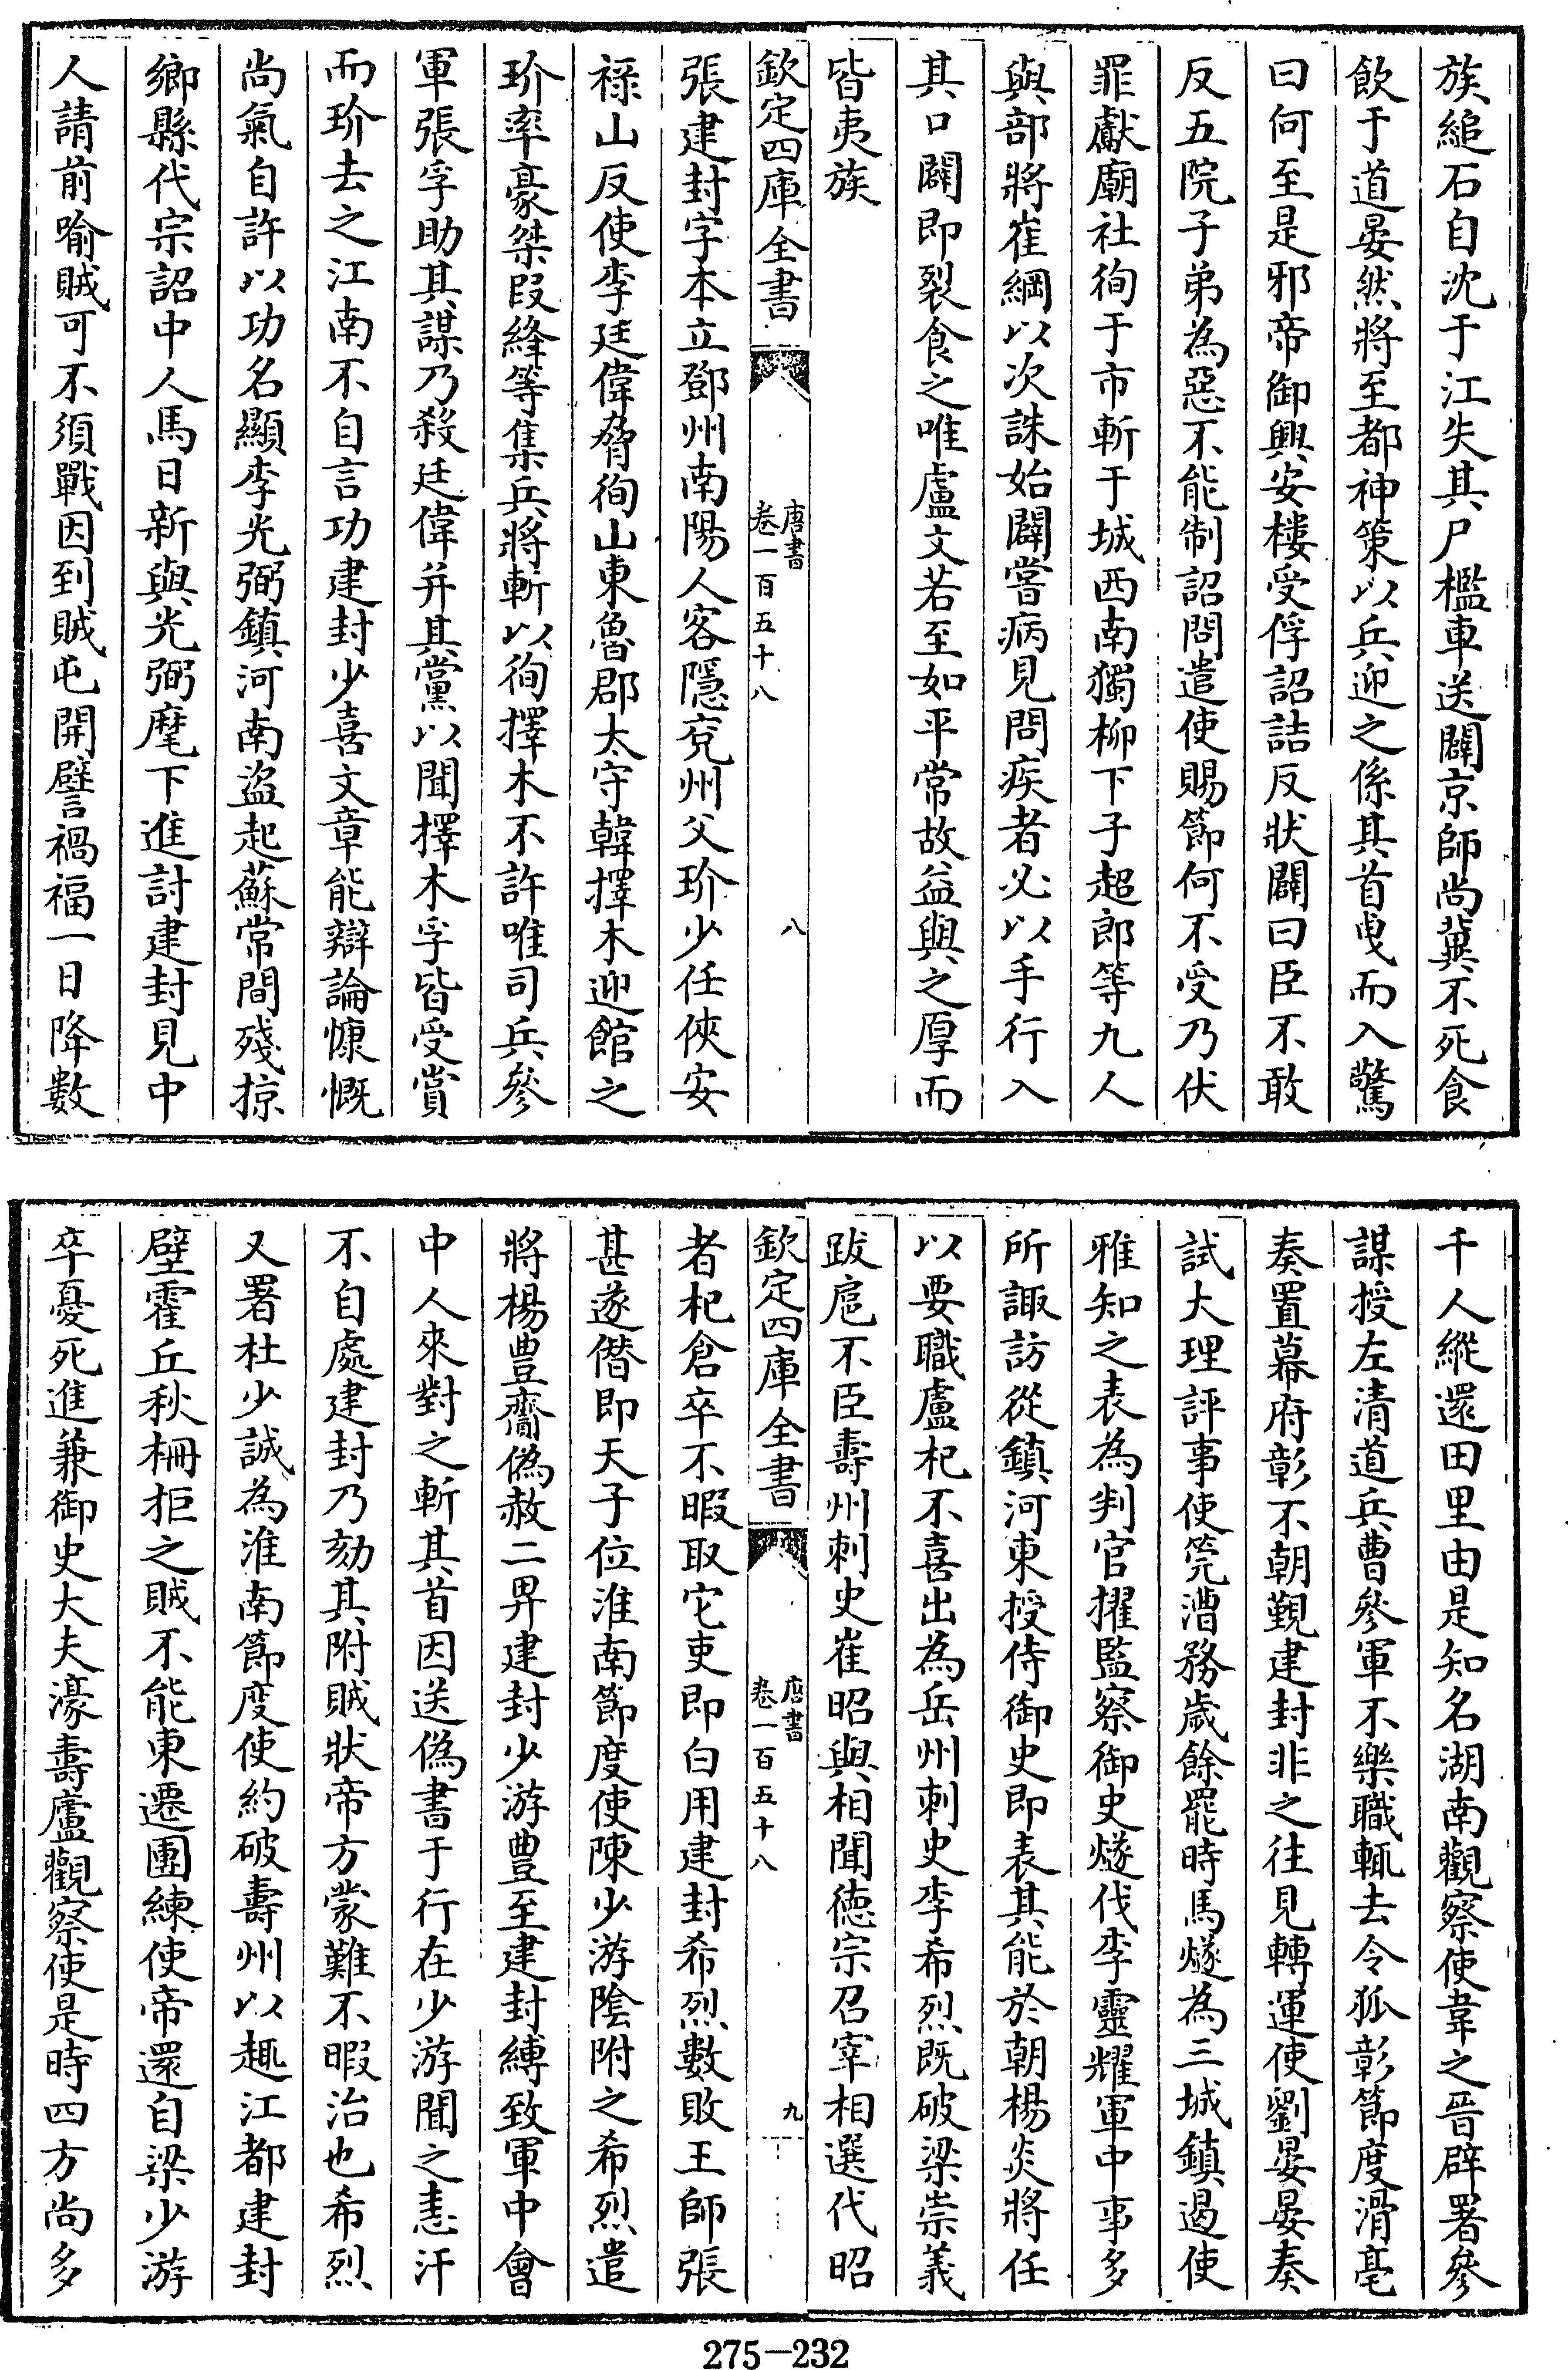 族縋石自沈于江失其尸檻車送闢京師尚冀不死食
飲于道晏然將至都神策以兵迎之係其首曵而入驚
曰何至是邪帝御興安樓受俘詔詰反狀闢曰臣不敢
反五院子弟為惡不能制詔問遣使賜節何不受乃伏
罪獻廟社徇于市斬于城西南獨柳下子超郎等九人
與部將崔綱以次誅始闢嘗病見問疾者必以手行入
其口闢即裂食之唯盧文若至如平常故益與之厚而
皆夷族
欽定四庫全書
唐書
卷一百五十八
八
張建封字本立鄧州南陽人客隱兗州父玠少任俠安
祿山反使李廷偉脅徇山東魯郡太守韓擇木迎館之
玠率豪桀段絳等集兵將斬以徇擇木不許唯司兵參
軍張孚助其謀乃殺廷偉并其黨以聞擇木孚皆受賞
而玠去之江南不自言功建封少喜文章能辯論慷慨
尚氣自許以功名顯李光弼鎮河南盜起蘇常間殘掠
鄉縣代宗詔中人馬日新與光弼麾下進討建封見中
人請前喻賊可不須戰因到賊屯開譬禍福一日降數
千人縱還田里由是知名湖南觀察使韋之晉辟署參
謀授左清道兵曹參軍不樂職輒去令狐彰節度滑亳
奏置幕府彰不朝覲建封非之往見轉運使劉晏晏奏
試大理評事使筦漕務歲餘罷時馬燧為三城鎮遏使
雅知之表為判官擢監察御史燧伐李靈耀軍中事多
所諏訪從鎮河東授侍御史即表其能於朝楊炎將任
以要職盧杞不喜出為岳州刺史李希烈既破梁崇義
跋扈不臣壽州刺史崔昭與相聞德宗召宰相選代昭
欽定四庫全書
唐書
卷一百五十八
九
者杞倉卒不暇取它吏即白用建封希烈數敗王師張
甚遂僭即天子位淮南節度使陳少游陰附之希烈遣
將楊豊齎偽赦二畀建封少游豊至建封縛致軍中會
中人來對之斬其首因送偽書于行在少游聞之恚汗
不自處建封乃劾其附賊狀帝方蒙難不暇治也希烈
又署杜少誠為淮南節度使約破壽州以趣江都建封
壁霍丘秋柵拒之賊不能東遷團練使帝還自梁少游
卒憂死進兼御史大夫濠壽廬觀察使是時四方尚多
275-232